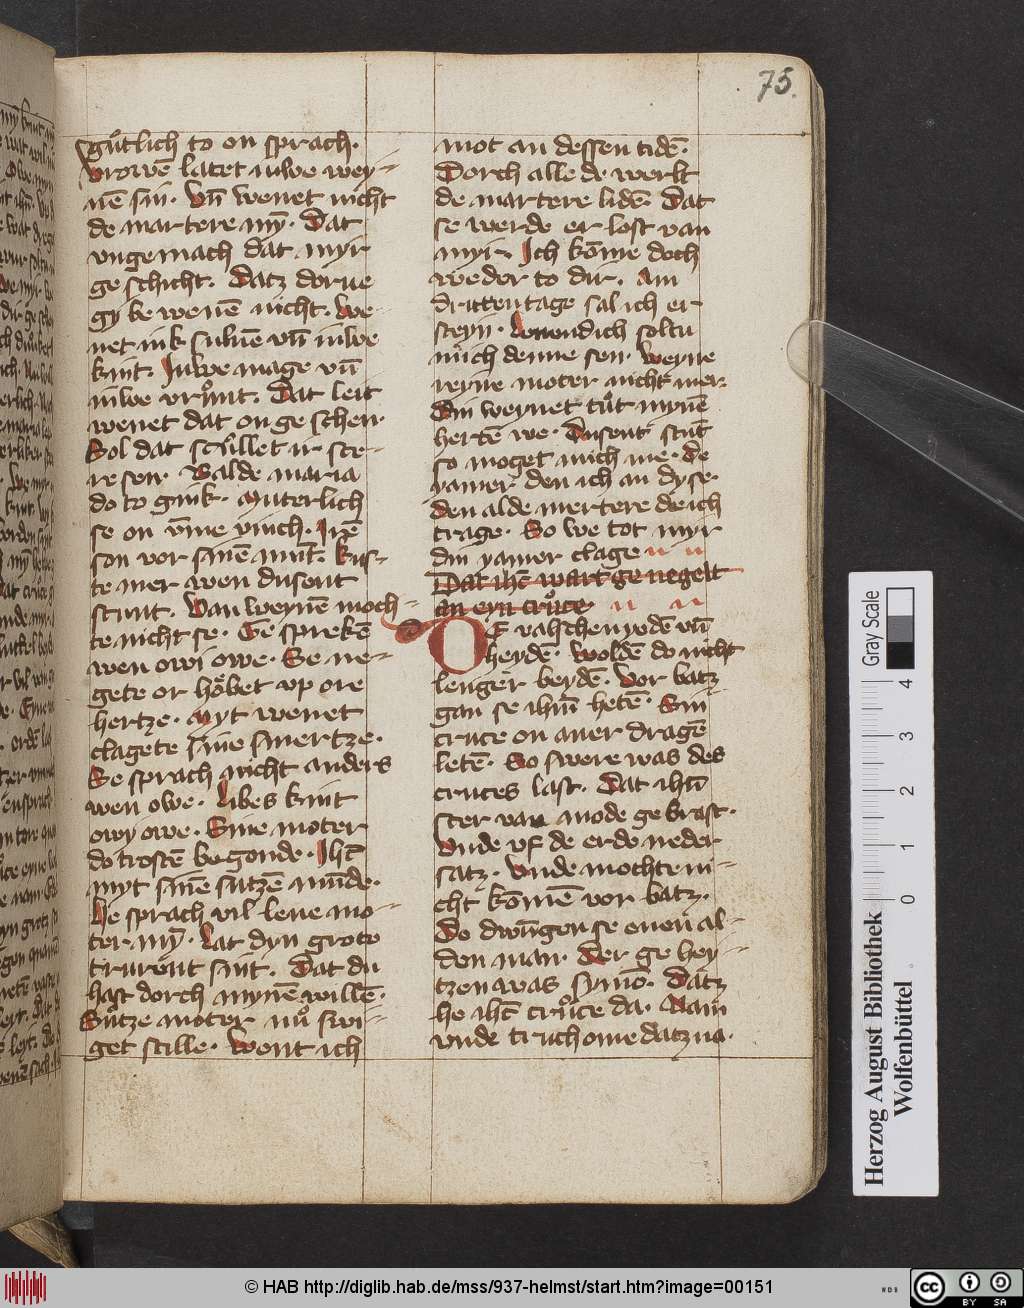 75.
gůtlich to on sprach.
vrowē latet iuwe wey-
nē sin. Vn̄ wenet nicht
de martere my̅. Dat
vngemach dat myr
geschicht. Datz dorne
gy be wenē nicht. We-
net iuk suluē vn̄ iuwe
kint. Juwe mage vn̄
iuwe vrůnt. Dat leit
wenet dat on ge schen.
Sol dat scůllet ir ste-
re sen. Balde maria
do to gink. Muterlich
se on vm̄e vinch. Irē
son vor sinē munt. Kus-
te mer wen dusent
stunt. Van weynē moch-
te nicht se. Ge sprekē
wen owi owe. Se ne-
gete or hőbet vp ore
hertze. Myt wenet
clagete sine smertze.
Se sprach nicht anders
wen owe. Libes kint
owy owe. Sine moter
do trostē be gonde. Jhc̄
myt sinē sutzē munde.
He sprach vil leue mo-
ter my̅. Lat dyn grote
trurent sint. Dat du
hast dorch mynē willē.
Sůtze moter nů swi-
get stille. Went ich
mot an dessen tidē.
Dorch alle de werlt
de martere lidē. Dat
se werde er lost van
myir. Ich kōme doch
weder to dir. Am
dritten tage sal ich er
steyn. Wenendich soltu
mich denne sen. Weyne
reyne moter nicht mer.
Din weynet tůt mynē
hertē we. Dusent stūt
so moget mich me. De
yamer den ich an dy se.
den alde mertere die ich
trage. So we tot myr
din yamer clage
Dat ihc̄ wart ge negelt
an eyn crůce
De valschen yodē vn̄
heydē. Woldē do nicht
lenger beydē. Vor batz
gan se ihm̄ hetē. Sin
cruce on auer dragē
letē. So swere was des
cruces last. Dat ihm̄
ster van mode ge brast.
Vnde vf de erde neder
satz. Vnde mochte ni-
cht kōmē vor batz.
Do dwūgen se enen al-
den man. Der ge hey-
tzen was symō. Datz
he ihc̄ crůce da. Nam
vnde truch ome datz na.
Gray Scale
0 1 2 3 4
Herzog August Bibliothek
Wolfenbüttel
© HAB http://diglib.hab.de/mss/937-helmst/start.htm?image=00151
WDB
cc BY SA